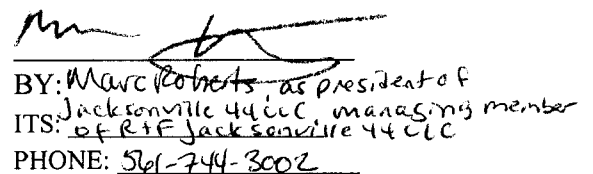 BY: Marc Roberts, as president of
Jacksonville 44 LLC, managing member
ITS: of R+F Jacksonville 44 LLC
PHONE: 561-744-3002